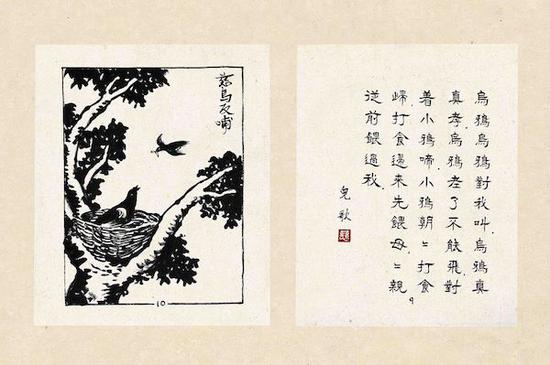 烏鴉烏鴉對我叫烏鴉真
真孝烏鴉老了不能飛對
着小鴉啼小鴉朝〻打食
歸打食還來先餵母〻親
從前餵過我
兒歌
9
慈烏反哺
10